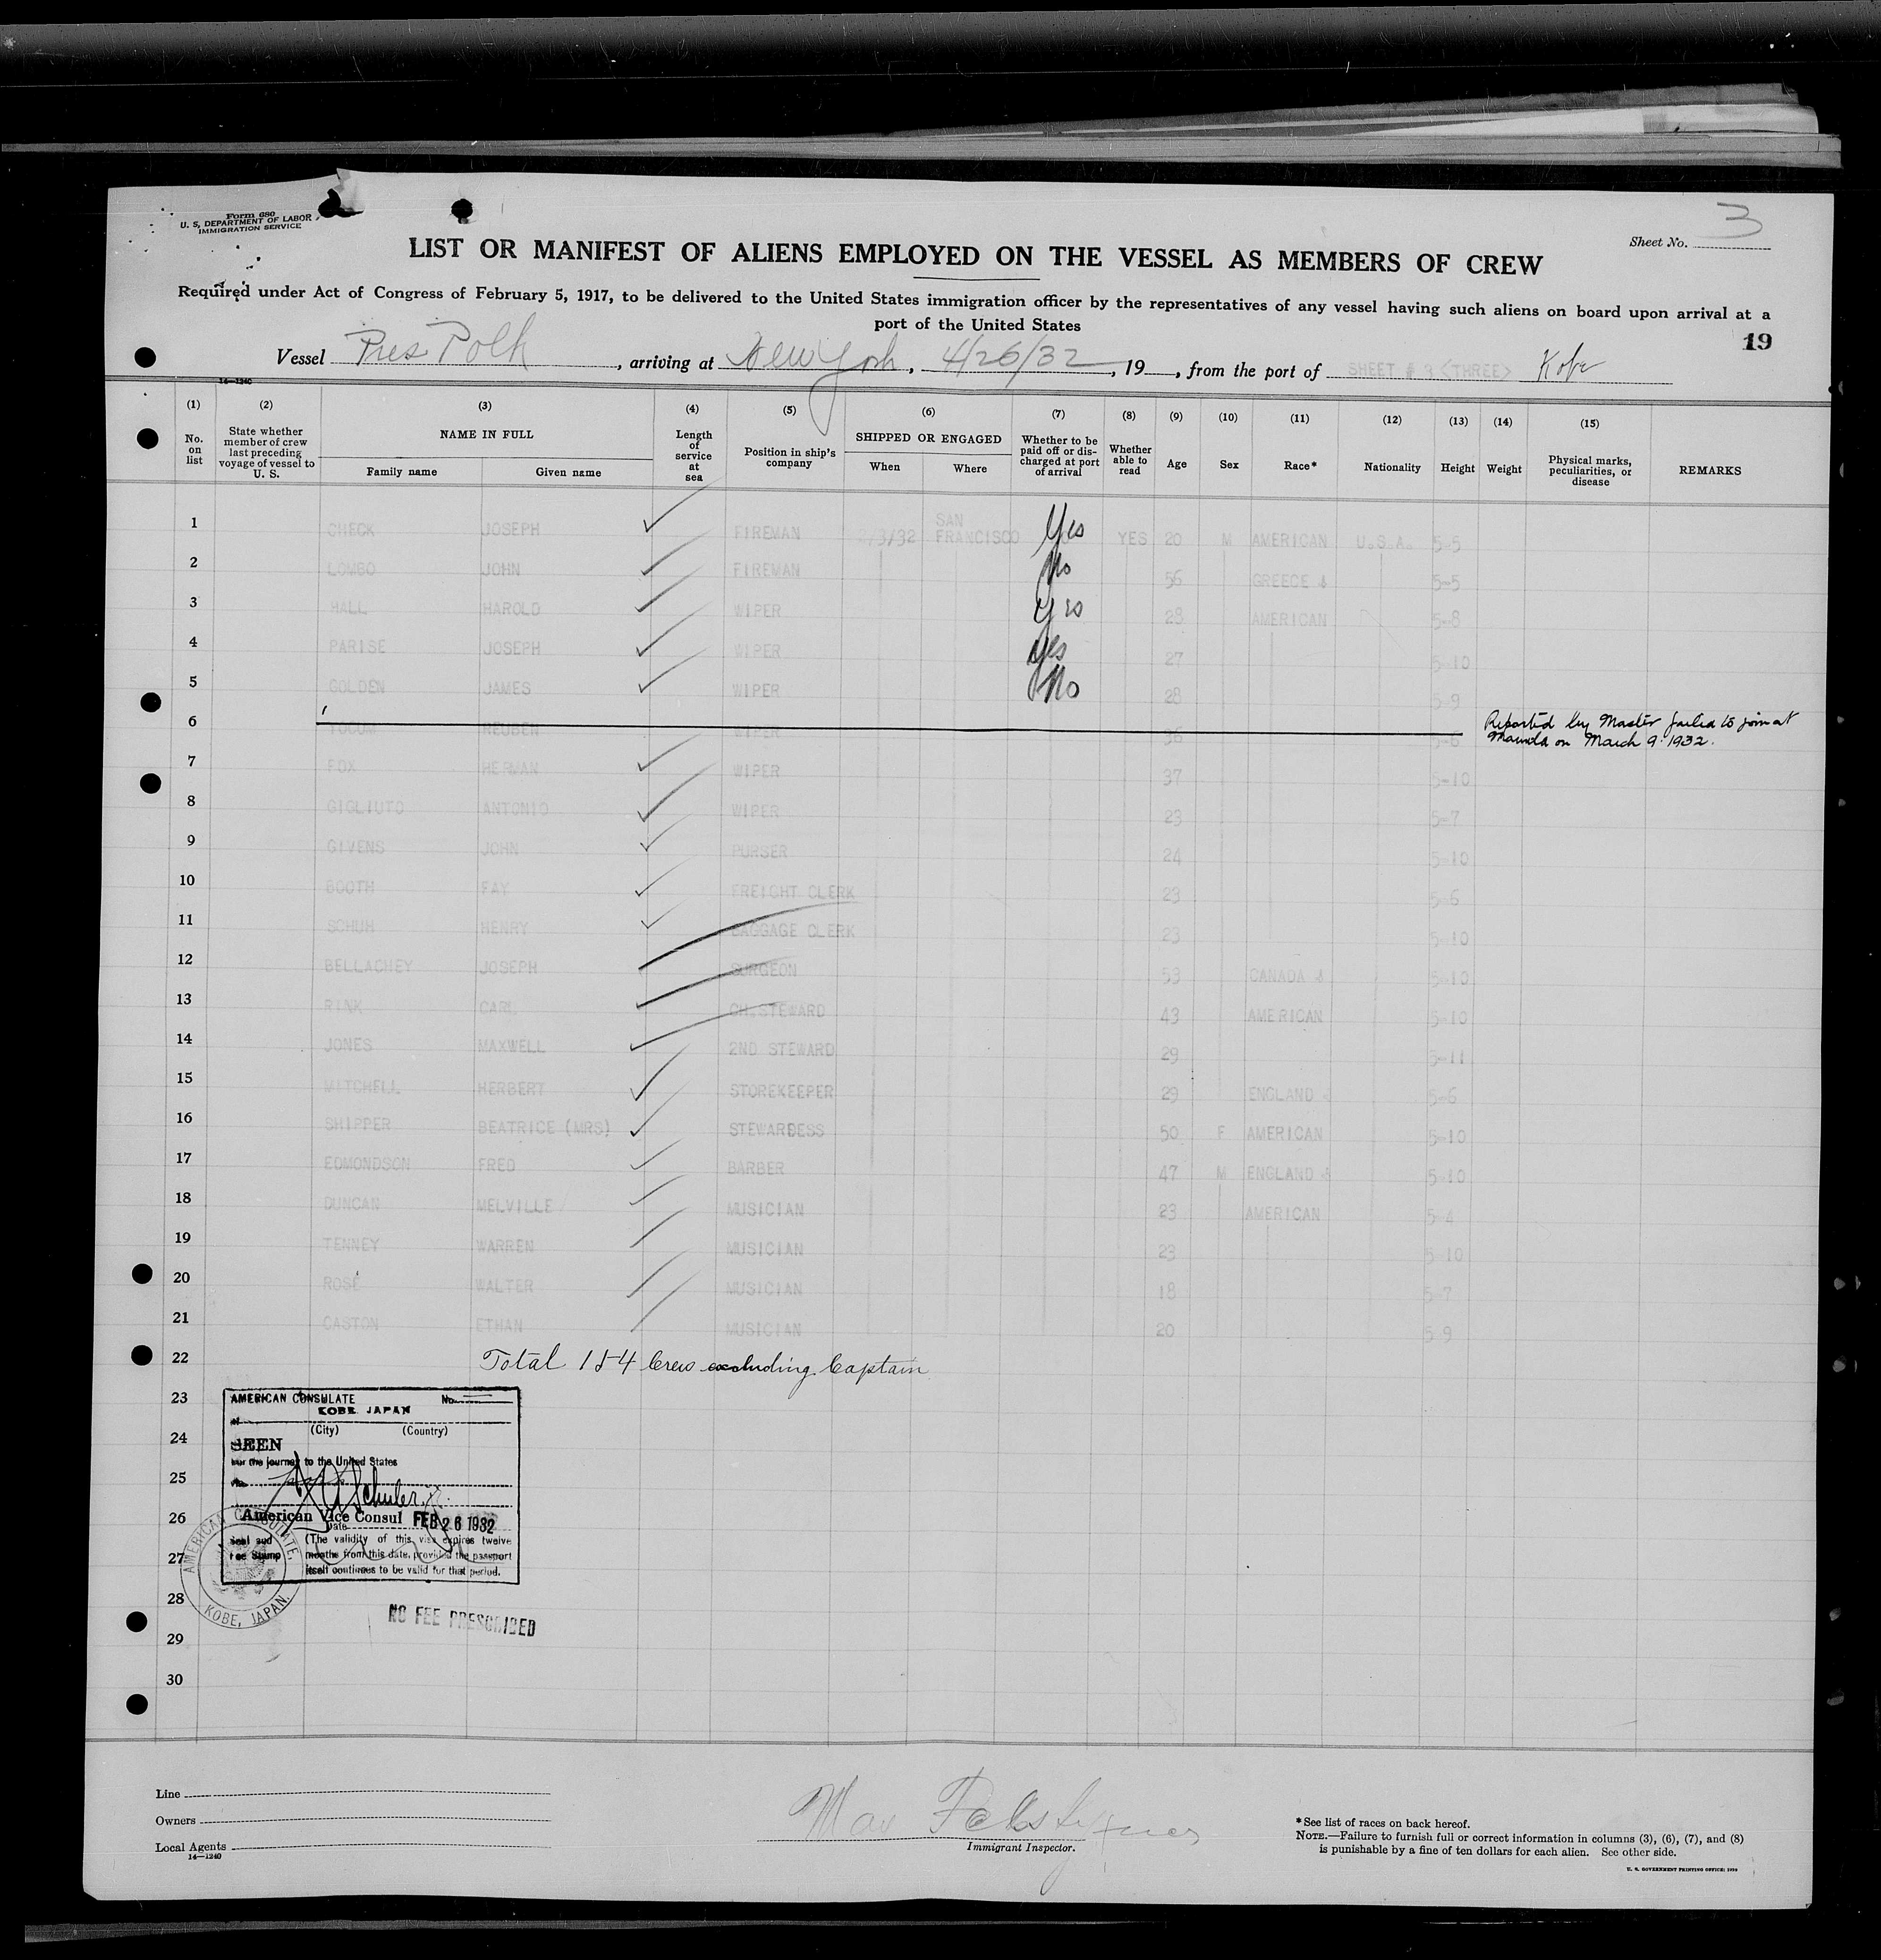 Form 680
U. S. DEPARTMENT OF LABOR
IMMIGRATION SERVICE
Sheet No. 3
LIST OR MANIFEST OF ALIENS EMPLOYED ON THE VESSEL AS MEMBERS OF CREW
Required under Act of Congress of February 5, 1917, to be delivered to the United States immigration officer by the representatives of any vessel having such aliens on board upon arrival at a
port of the United States
19
Vessel Pres Polk, arriving at New York, 4/26/32, 19, from the port of SHEET # 3 <THREE> Kobe
14—1240
(1) (2) (3) (4) (5) (6) (7) (8) (9) (10) (11) (12) (13) (14) (15)
No. on list
State whether member of crew last preceding voyage of vessel to U. S.
NAME IN FULL
Family name Given name
Length of service at sea
Position in ship's company
SHIPPED OR ENGAGED
When Where
Whether to be paid off or discharged at port of arrival
Whether able to read
Age Sex Race* Nationality Height Weight
Physical marks, peculiarities, or disease
REMARKS
1 CHECK JOSEPH FIREMAN /3/32 SAN FRANCISCO Yes YES 20 M AMERICAN U.S.A. 5-5
2 LOMBO JOHN FIREMAN No 56 GREECE 5-5
3 HALL HAROLD WIPER Yes 28 AMERICAN 5-8
4 PARISE JOSEPH WIPER Yes 27 5-10
5 GOLDEN JAMES WIPER No 28 5-9
6 YOCUM REUBEN WIPER 36 5-6 Reported by Master failed to join at
Manila on March 9. 1932.
7 FOX HERMAN WIPER 37 5-10
8 GIGLIUTO ANTONIO WIPER 23 5-7
9 GIVENS JOHN PURSER 24 5-10
10 BOOTH FAY FREIGHT CLERK 23 5-6
11 SCHUH HENRY BAGGAGE CLERK 23 5-10
12 BELLACHEY JOSEPH SURGEON 53 CANADA 5-10
13 RINK CARL CH.STEWARD 43 AMERICAN 5-10
14 JONES MAXWELL 2ND STEWARD 29 5-11
15 MITCHELL HERBERT STOREKEEPER 29 ENGLAND 5-6
16 SHIPPER BEATRICE (MRS) STEWARDESS 50 F AMERICAN 5-10
17 EDMONDSON FRED BARBER 47 M ENGLAND 5-10
18 DUNCAN MELVILLE MUSICIAN 23 AMERICAN 5-4
19 TENNEY WARREN MUSICIAN 23 5-10
20 ROSE WALTER MUSICIAN 18 5-7
21 CASTON ETHAN MUSICIAN 20 5-9
22 Total 154 Crew excluding Captain
23
24
25
26
27
28
29
30
AMERICAN CONSULATE No.
KOBE JAPAN
(City) (Country)
SEEN
For the journey to the United States
Schuler, jr.
American Vice Consul FEB 26 1932
Date
Seal and Fee Stamp
(The validity of this visa expires twelve
months from this date, provided the passport
itself continues to be valid for that period.
AMERICAN CONSULATE, KOBE, JAPAN.
NO FEE PRESCRIBED
Line
Owners
Local Agents
14—1240
Immigrant Inspector.
*See list of races on back hereof.
NOTE.—Failure to furnish full or correct information in columns (3), (6), (7), and (8)
is punishable by a fine of ten dollars for each alien. See other side.
U. S. GOVERNMENT PRINTING OFFICE: